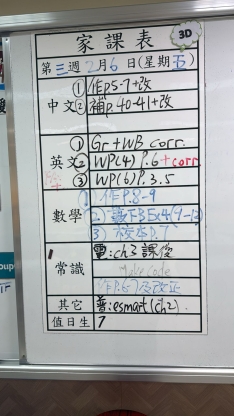 家課表
3D
第三週2月6日(星期五)
中文
① 作p.5-7+改
② 補p.40-41+改
英文
① Gr+WB corr.
② WP(4) p.6+corr
③ WP(6) p.3.5
數學
① 作P.8-9
3) 校本P.7
常識
電:ch3 課後
其它
普:esmart(ch2).
值日生
7